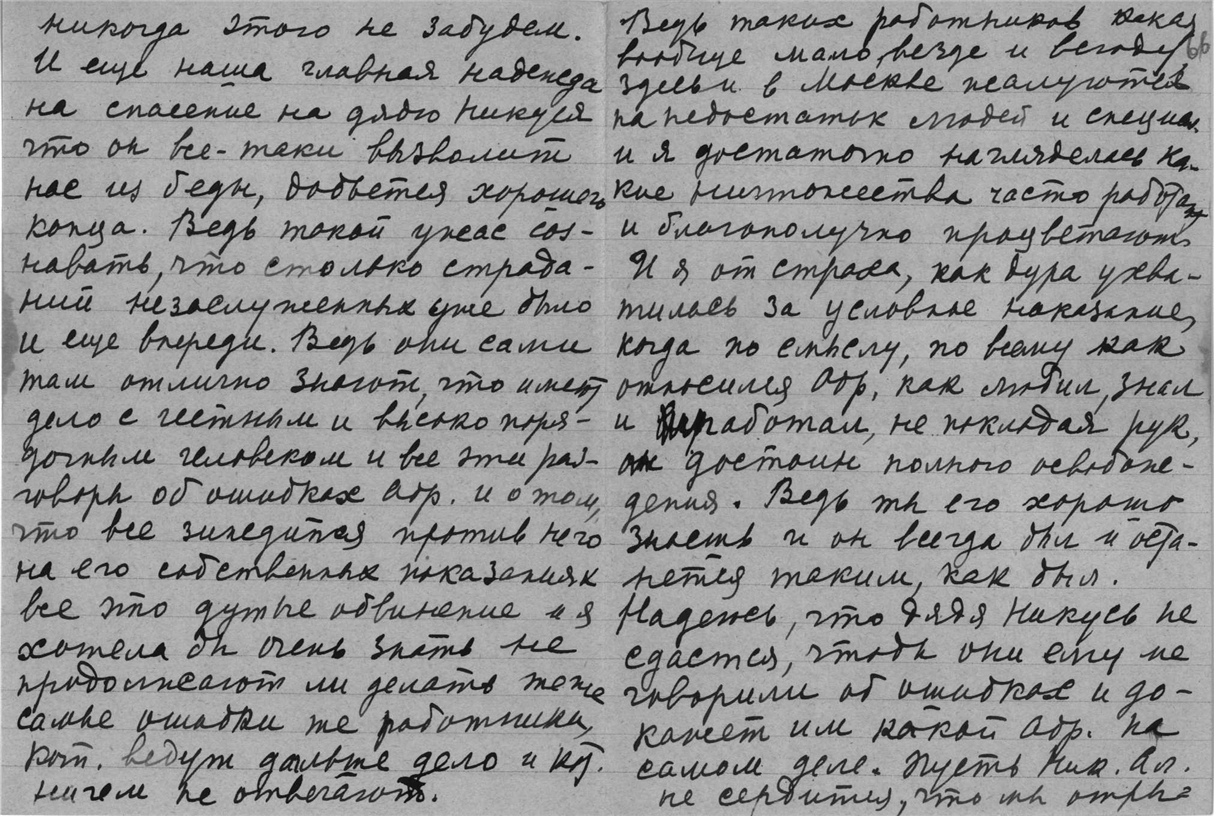 никогда этого не забудем.
И еще наша главная надежда
на спасение на дядю Никуся
что он все-таки вызволит
нас из беды, добьется хорошего
конца. Ведь такой ужас соз-
навать, что столько страда-
ний незаслуженных уже было
и еще впереди. Ведь они сами
там отлично знают, что имеют
дело с честным и высоко поря-
дочным человеком и все эти раз-
говоры об ошибках Абр. и о том,
что все зиждится против него
на его собственных показаниях
все это дутые обвинение и я
хотела бы очень знать не
продолжают ли делать те же
самые ошибки те работники,
кот. ведут дальше дело и кот.
ничем не отвечают.
Ведь таких работников как я
вообще мало, везде и всюду,
здесь и в Москве жалуются
на недостаток людей и специал.
и я достаточно нагляделась ка-
кие ничтожества часто работают
и благополучно процветают.
И я от страха, как дура ухва-
тилась за условное наказание,
когда по смыслу, по всему как
относился Абр, как любил, знал
и работал, не покладая рук,
он достоин полного освобож-
дения. Ведь ты его хорошо
знаешь и он всегда был и оста-
нется таким, как был.
Надеюсь, что дядя Никусь не
сдастся, чтобы они ему не
говорили об ошибках и до-
кажет им какой Абр. на
самом деле. Пусть Ник. Ал.
не сердится, что мы отры-